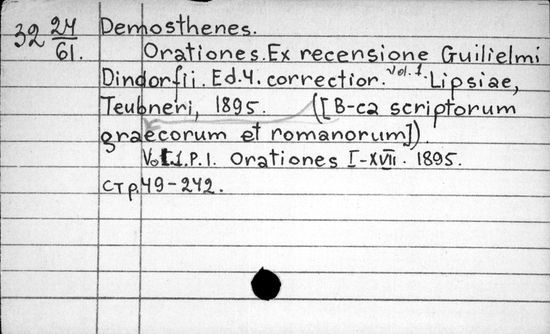 32 24/61.
Demosthenes.
Orationes. Ex recensione Guilielmi
Dindorfii. Ed. 4. correctior. Vol. 1. Lipsiae,
Teubneri, 1895. ([B-ca scriptorum
graecorum et romanorum])
Vol. 1. P. I. Orationes I-XVII. 1895.
стр. 49-242.